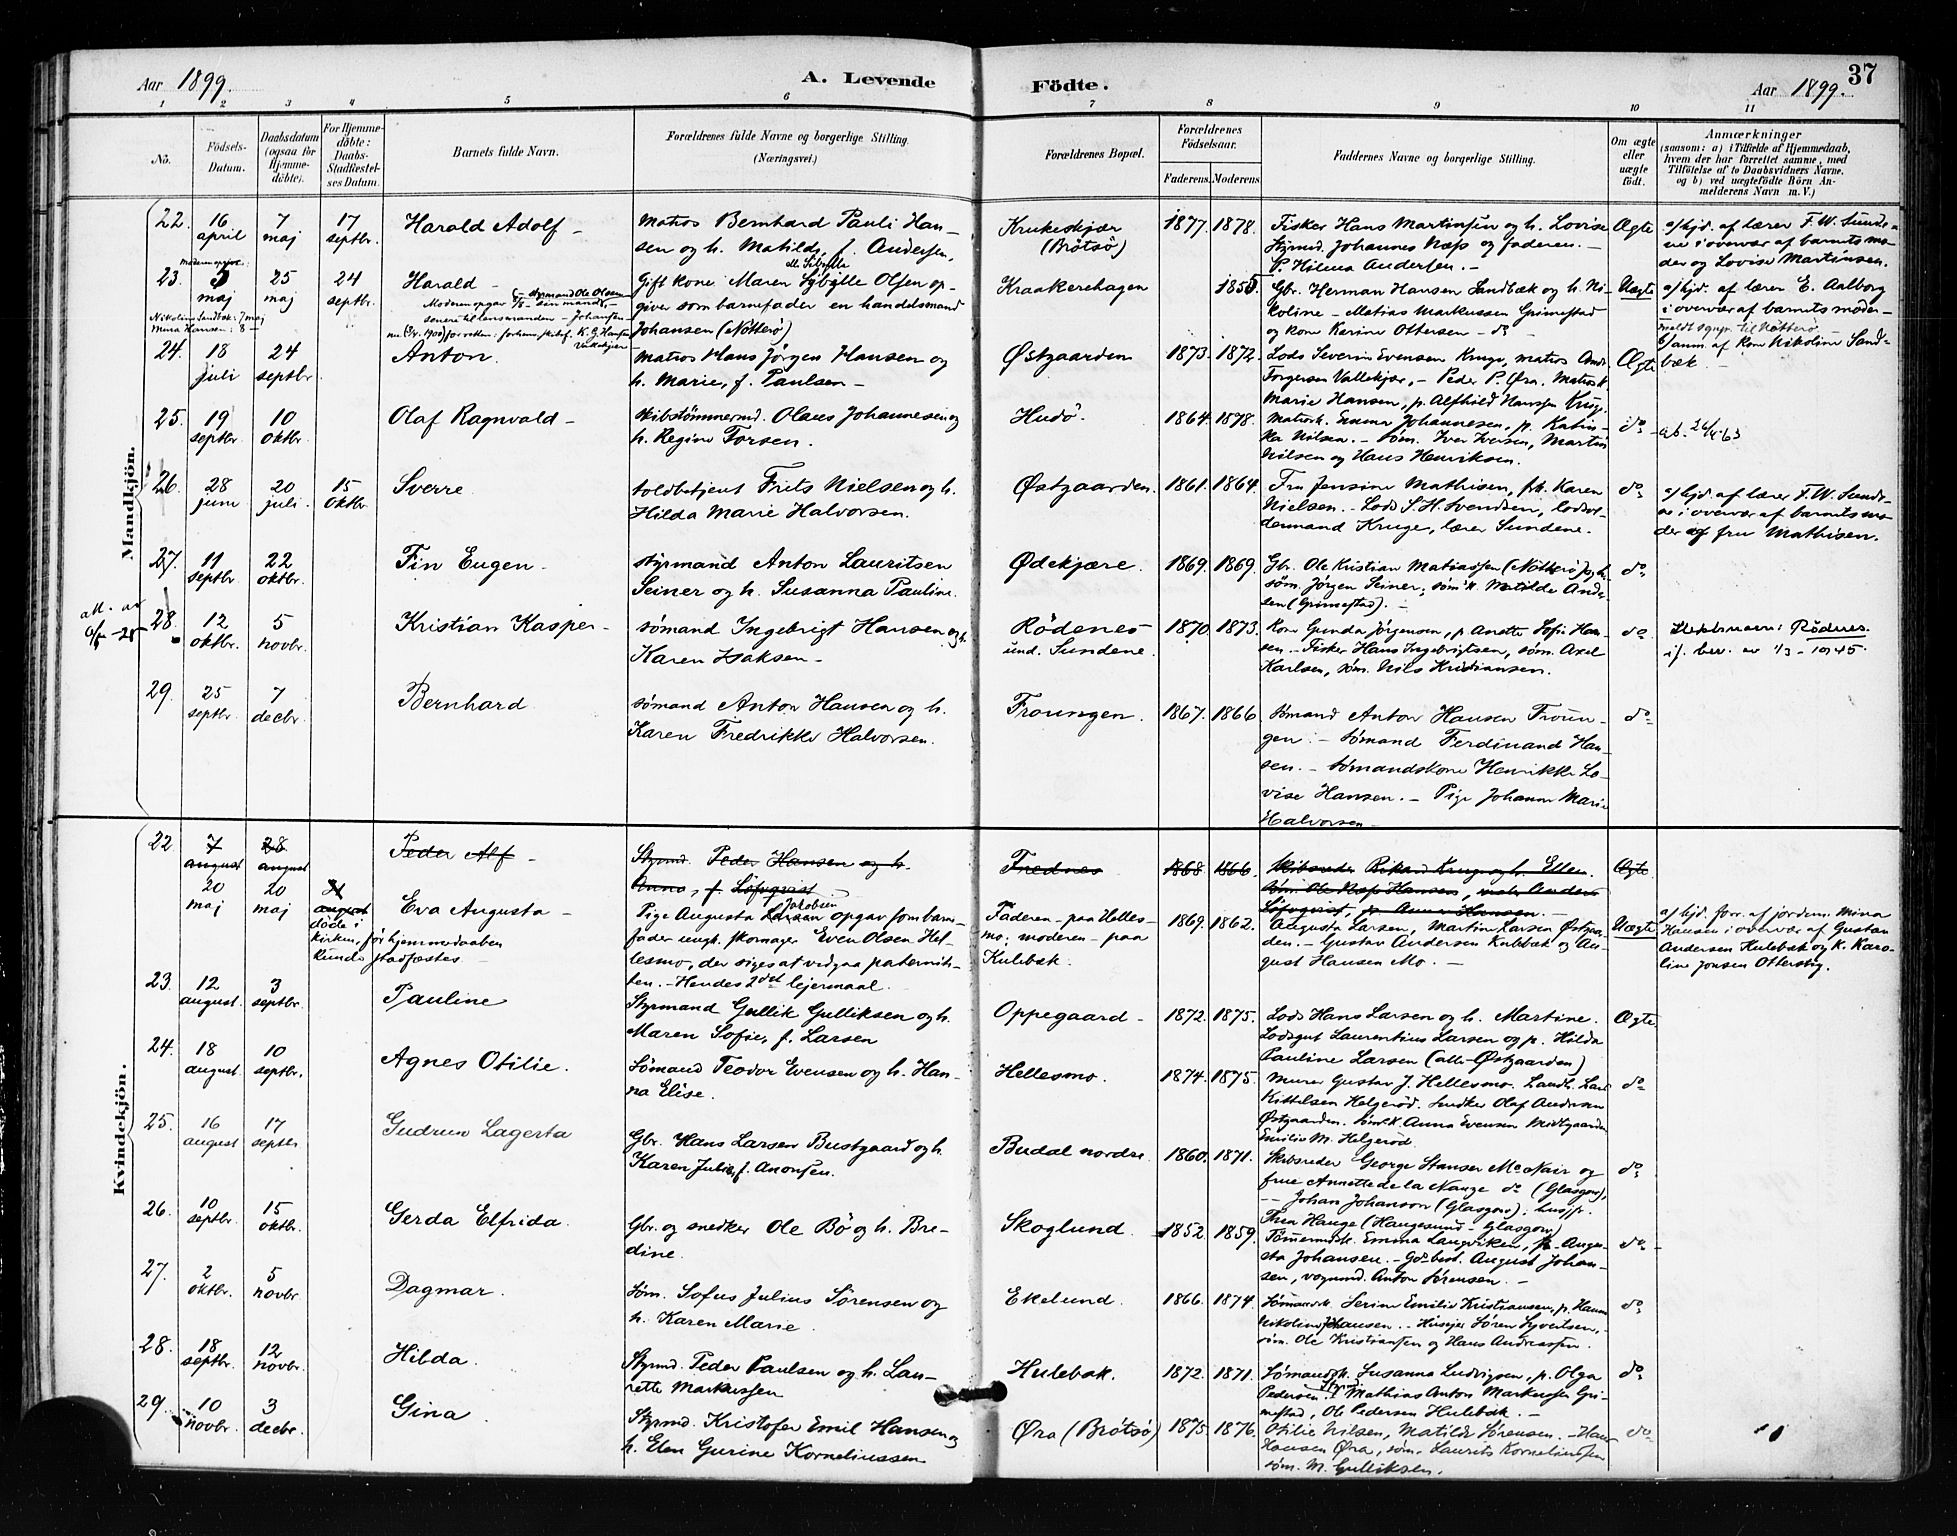 Aar 1899.
A. Levende
Födte.
Aar 1899.
37
1 2 3 4 5 6 7 8 9 10 11
No.
Födsels-
Datum.
Daabsdatum
(ogsaa for
Hjemme-
døbte).
For Hjemme-
døbte:
Daabs-
Stadfæstel-
ses Datum.
Barnets fulde Navn.
Forældrenes fulde Navne og borgerlige Stilling.
(Næringsvei.)
Forældrenes Bopæl.
Forældrenes
Födselsaar.
Faderens. Moderens.
Faddernes Navne og borgerlige Stilling.
Om ægte
eller
uægte
födt.
Anmærkninger
(saasom: a) i Tilfælde af Hjemmedaab,
hvem der har forrettet samme, med
Tilföielse af to Daabsvidners Navne,
og b) ved uægtefödte Börn An-
melderens Navn m. V.)
Mandkjön.
22. 16 april 7 maj 17 septbr.
Harald Adolf -
Matros Bernhard Pauli Han-
sen og h. Matilde, f. Andersen,
Krukekjær
(Brötsö)
1877. 1878.
Fisker Hans Martinsen og h. Lovise
Styrmd. Johannes Næs og faderen. -
P. Hilma Andersen. -
Ægte
a/ hjd. af lærer F. W. Sunde-
ne i overvær af barnets mo-
der og Lovise Martinsen.
23. 5 maj 25 maj 24 septbr.
Harald -
Gift kone Maren Sybylle Olsen op-
giver som barnefader en handelsmand
Johansen (Nötterö)
Kraakerehagen
1855
Gbr. Herman Hansen Sandbæk og h. Ni-
koline - Matias Markussen Grimestad
og kone Karine Ottersen - do
Uægte
a/ hjd. af lærer E. Aalborg
i overvær af barnets moder -
b/ anm. af kone Nikoline Sand-
bæk -
24. 18 juli 24 septbr.
Anton.
Matros Hans Jörgen Hansen og
h. Marie, f. Paulsen -
Østgaarden
1873. 1872.
Lods Severin Evensen Kruge, matros
Torgersen Vallekjær, - Peder P. Øra. Matrosk
Marie Hansen, p. Alfhild Hansen Kruge.
Ægte
25. 19 septbr. 10 oktbr.
Olaf Ragnvald -
Skibstömmermd. Olaus Johannesen og
h. Regine Torsen.
Hudö.
1864. 1878.
Matrosk. Emma Johannesen, p. Katin-
ka Nilsen. - söm. Iver Iversen, Martin
Nilsen og Hans Henriksen.
do
26. 28 juni 20 juli 15 oktbr
Sverre.
Toldbetjent Frits Nielsen og h.
Hilda Marie Halvorsen.
Østgaarden.
1861. 1864.
Fru Jensine Mathisen, frk. Karen
Nielsen. - Lods S. H. Svendsen, lodsol-
dermand Kruge, lærer Sundene.
do
a/ hjd. af lærer F. W. Sund-
ne i overvær af barnets mo-
der og fru Mathisen.
27. 11 septbr. 22 oktbr.
Fin Eugen -
Styrmand Anton Lauritsen
Seiner og h. Susanna Pauline.
Ødekjære.
1869. 1869.
Gbr. Ole Kristian Matiassen (Nötterö)
söm. Jörgen Seiner; söm k. Matilde Ander-
sen (Grimestad). -
do
28. 12 oktbr. 5 novbr.
Kristian Kasper -
Sömand Ingebrigt Hansen og h.
Karen Isaksen -
Rödenes
und. Sundene.
1870. 1873.
Kone Gunda Jörgensen, p. Anette Sofie Han-
sen. - Fisker Hans Ingebrigtsen, söm. Axel
Karlsen, söm. Nils Kristiansen.
do
Slektsnavn: Rödnes.
if. bev. av 1/3 - 1945.
29. 25 septbr. 7 decbr.
Bernhard
Sömand Anton Hansen og h.
Karen Fredrikke Halvorsen.
Froungen.
1867. 1866
Sömand Anton Hansen Froun-
gen. - Sömand Ferdinand Han-
sen. - Sömandskone Henrikke Lo-
vise Hansen. - Pige Johanne Marie
Halvorsen
do
Kvindekjön.
22 7 august 28 august
Peder Alf -
Styrmd. Peder Hansen og h.
Anna, f. Löfqvist
Frednes
1868 1866
Ægte
20 maj 20 maj
Eva Augusta -
Pige Augusta Larsen Jakobsen opgav som barne-
fader ungk. skomager Even Olsen Hel-
lesmo, der siges at vedgaa paternite-
ten. - Hendes 2det lejermaal.
döde i
kirken, för hjemmedaaben
kunde stadfæstes
Faderen - paa Helles-
mo; moderen - paa
Hulebæk.
1869. 1862.
Augusta Larsen, Martin Larsen Østgaar-
den. - Gustav Andersen Hulebæk og Au-
gust Hansen Mo. -
Uægte
a/ hjd. forr. af jordem. Mina
Hansen i overvær af Gustav
Andersen Hulebæk og k. Karo-
line Jonsen Otterstig.
23. 12 august. 3 septbr.
Pauline
Styrmand Gullik Gulliksen og h.
Maren Sofie, f. Larsen
Oppegaard -
1872. 1875.
Lods Hans Larsen og h. Martine.
Lodsgut Laurentius Larsen og p. Hilda
Pauline Larsen (alle Østgaarden)
Ægte.
24. 18 august 10 septbr.
Agnes Otilie.
Sömand Teodor Evensen og h. Han-
na Elise.
Hellesmo.
1874. 1875.
Murer Gustav J. Hellesmo. Landh. Lars
Kittilsen Helgeröd. Snedker Olaf Andersen
Østgaarden. söm k. Anna Evensen Midtgaarden
Emilie M. Helgeröd
do
25. 16 august 17 septbr
Gudrun Lagerta
Gbr. Hans Larsen Bustgaard og h.
Karen Julie, f. Anonsen.
Budal nordre.
1860. 1871.
Skibsreder George Stanser McNair og
frue Annette de la Nauze do (Glasgow),
- - Johan Johanson (Glasgow); husj.p.
Thea Hauge (Haugesund - Glasgow)
do
26. 10 septbr. 15 oktbr.
Gerda Elfrida.
Gbr. og snedker Ole Bö og h. Bre-
dine.
Skoglund.
1852. 1859.
Tömmermdk. Emma Langviken, p. Augu-
sta Johansen. - Gdbest. August Johan-
sen, vognmd. Anton Sörensen. -
do
27. 2 oktbr. 5 novbr.
Dagmar.
Söm. Sofus Julius Sörensen og
h. Karen Marie.
Ekelund.
1866. 1874.
Sömandsk. Serine Emilie Kristiansen, p. Hanna
Nikoline Johansen. - Husejer Sören Syvertsen,
söm. Ole Kristiansen og Hans Andreassen.
do
28. 18 septbr. 12 novbr.
Hilda.
Styrmd. Peder Paulsen og h. Lau-
rette Markussen
Hulebak.
1872. 1871.
Sömandsk. Susanna Ludvigsen, p. Olga
Pedersen. Styrmd. Mathias Anton Markussen Gri-
mestad, Ole Pedersen Hulebæk. -
do
29. 10 novbr. 3 decbr.
Gina
Styrmd. Kristofer Emil Hansen og
h. Elen Gurine Korneliussen
Øra (Brötsö)
1875. 1876.
Otilie Nilsen, Matilde Sörensen. - Hans
Hansen Øra, söm. Laurits Korneliussen
söm. M. Gulliksen.
do